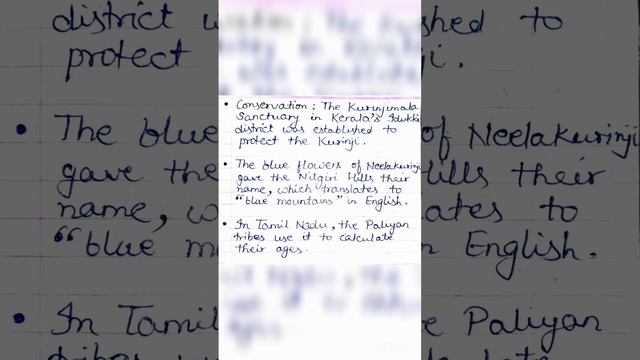 • Conservation : The Kurinjimala
Sanctuary in Kerala's Idukki
district was established to
protect the Kurinji.
• The blue flowers of Neelakurinji
gave the Nilgiri Hills their
name, which translates to
"blue mountains" in English.
• In Tamil Nadu, the Paliyan
tribes use it to calculate
their ages.